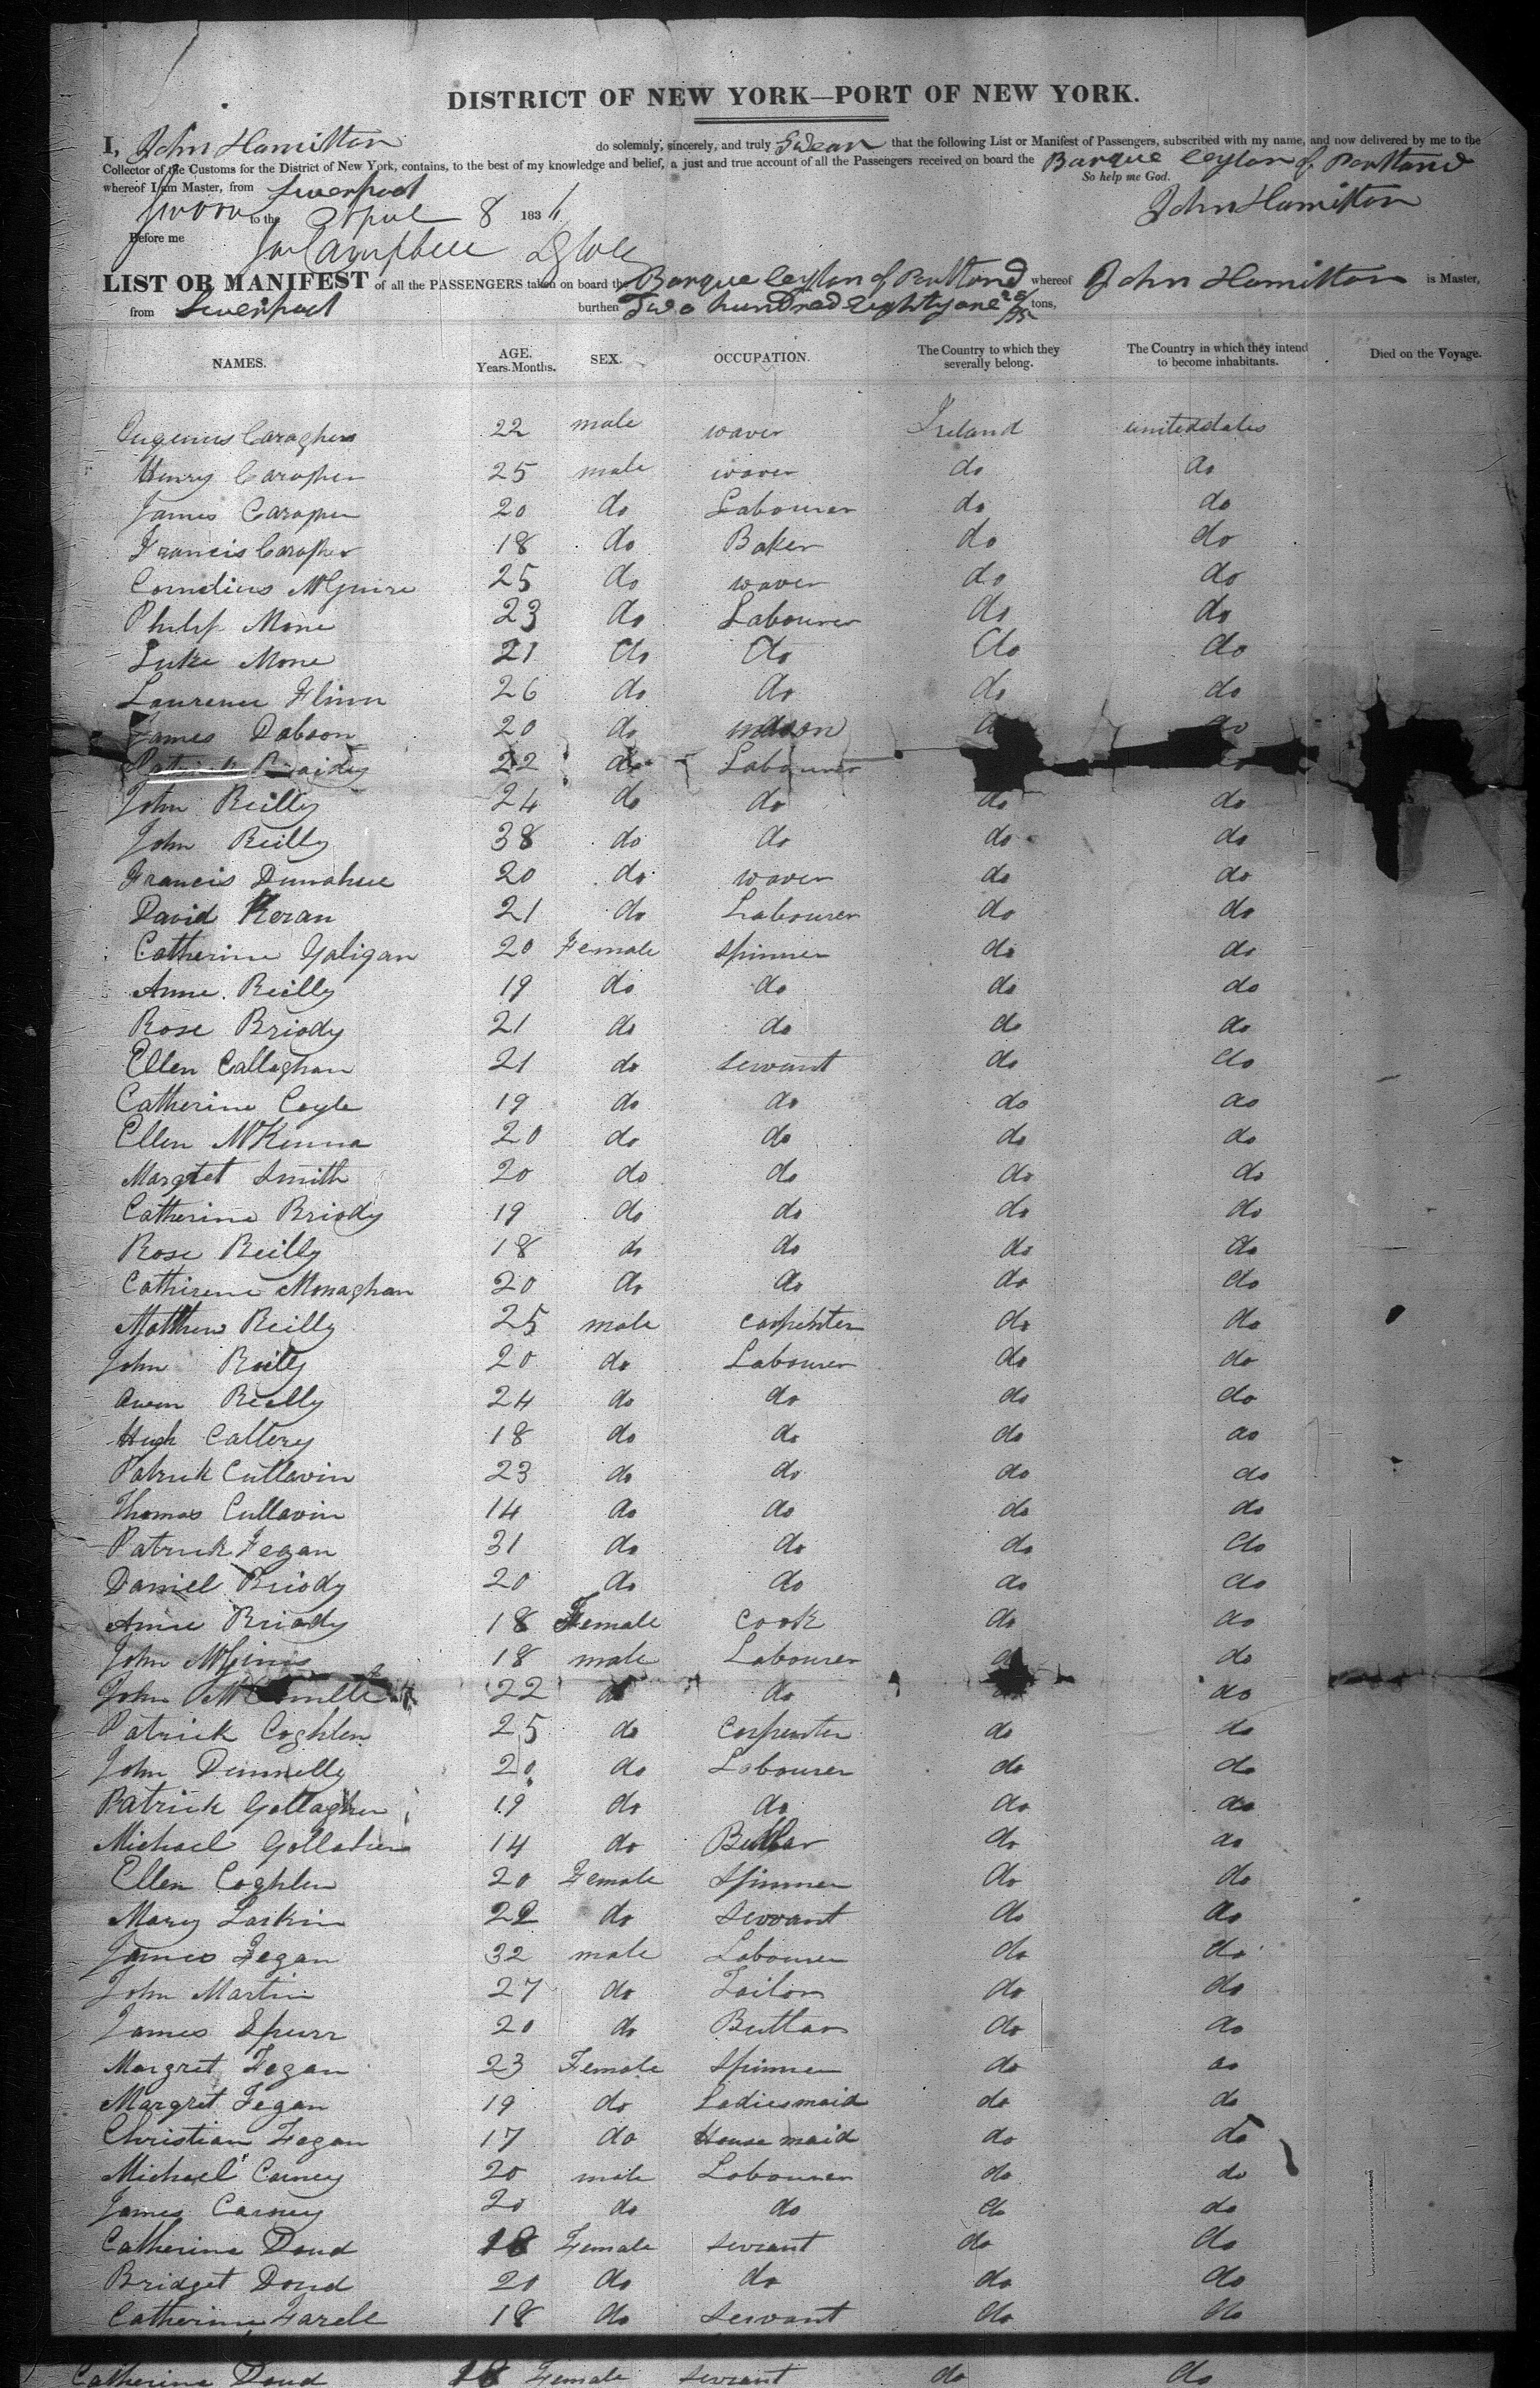 DISTRICT OF NEW YORK—PORT OF NEW YORK.
I, John Hamilton do solemnly, sincerely, and truly Swear that the following List or Manifest of Passengers, subscribed with my name, and now delivered by me to the
Collector of the Customs for the District of New York, contains, to the best of my knowledge and belief, a just and true account of all the Passengers received on board the Barque Ceylon of Portland
whereof I am Master, from Liverpool So help me God.
Sworn to the April 8 1836 John Hamilton
Before me Campbell
LIST OR MANIFEST of all the PASSENGERS taken on board the Barque Ceylon of Portland whereof John Hamilton is Master,
from Liverpool burthen Two hundred eighty one tons,
NAMES. AGE. Years. Months. SEX. OCCUPATION. The Country to which they severally belong. The Country in which they intend to become inhabitants. Died on the Voyage.
Eugenius Caraghers 22 male waver Ireland united states
Henry Carapher 25 male waver do do
James Caraper 20 do Labourer do do
Francis Carapher 18 do Baker do do
Cornelius McGuire 25 do waver do do
Philip Mone 23 do Labourer do do
Luke Mone 21 do do do do
Laurence Flinn 26 do do do do
James Dobson 20 do mason do do
Patrick 22 do Labourer
John Reilly 24 do do do do
John Reilly 38 do do do do
Francis Dunahue 20 do waver do do
David Keran 21 do Labourer do do
Catherine Galigan 20 Female spinner do do
Anne Reilly 19 do do do do
Rose Briody 21 do do do do
Ellen Callaghan 21 do servant do do
Catherine Coyle 19 do do do do
Ellen McKenna 20 do do do do
Margret Smith 20 do do do do
Catherine Briody 19 do do do do
Rose Reilly 18 do do do do
Cathirene Monaghan 20 do do do do
Matthew Reilly 25 male carpenter do do
John Reilly 20 do Labourer do do
Owen Reilly 24 do do do do
Hugh Cattery 18 do do do do
Patrick Cullavin 23 do do do do
Thomas Cullavin 14 do do do do
Patrick Fegan 31 do do do do
Daniel Briody 20 do do do do
Anne Briody 18 Female cook do do
John McGinis 18 male Labourer do do
John 22 do do do do
Patrick Coghlen 25 do Carpenter do do
John Dunnelly 20 do Labourer do do
Patrick Gallagher 19 do do do do
Michael 14 do Butlar do do
Ellen Coghlen 20 Female Spinner do do
Mary Larkin 22 do servant do do
James Fegan 32 male Labourer do do
John Martin 27 do Tailor do do
James Spurr 20 do Butlar do do
Margret Fegan 23 Female Spinner do do
Margret Fegan 19 do Ladies maid do do
Christian Fegan 17 do House maid do do
Michael Carney 20 male Labourer do do
James Carney 20 do do do do
Catherine Doud 18 Female servant do do
Bridget Doud 20 do do do do
Catherine Farell 18 do servant do do
Catherine Doud 18 Female servant do do